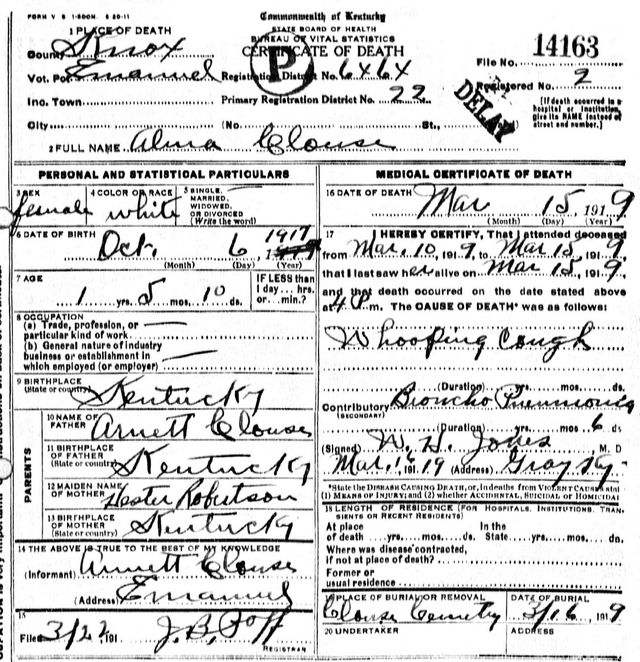 FORM V S 1-500M. 5 20-11
Commonwealth of Kentucky
STATE BOARD OF HEALTH
BUREAU OF VITAL STATISTICS
CERTIFICATE OF DEATH
1 PLACE OF DEATH
County Knox
File No. 14163
Vot. Pct Emanuel Registration District No. 6X6X
Registered No. 2
P
DELAY
Ino. Town Primary Registration District No. 22
[If death occurred in a hospital or institution, give its NAME instead of street and number.]
City (No. St.,
2 FULL NAME Alma Clouse
PERSONAL AND STATISTICAL PARTICULARS
3 SEX female
4 COLOR OR RACE white
5 SINGLE, MARRIED, WIDOWED, OR DIVORCED (Write the word)
6 DATE OF BIRTH Oct. 6, 1917
(Month) (Day) (Year)
7 AGE
1 yrs. 5 mos. 10 ds.
IF LESS than 1 day... hrs. or... min.?
8 OCCUPATION
(a) Trade, profession, or particular kind of work
(b) General nature of industry business or establishment in which employed (or employer)
9 BIRTHPLACE (State or country) Kentucky
PARENTS
10 NAME OF FATHER Arnett Clouse
11 BIRTHPLACE OF FATHER (State or country) Kentucky
12 MAIDEN NAME OF MOTHER Hester Robertson
13 BIRTHPLACE OF MOTHER (State or country) Kentucky
14 THE ABOVE IS TRUE TO THE BEST OF MY KNOWLEDGE
(Informant) Arnett Clouse
(Address) Emanuel
15
Filed 3/22 191 J. B.
REGISTRAR
MEDICAL CERTIFICATE OF DEATH
16 DATE OF DEATH Mar 15 1919
(Month) (Day) (Year)
17 I HEREBY CERTIFY, That I attended deceased
from Mar. 10, 1919, to Mar 15, 1919,
that I last saw her alive on Mar 15, 1919,
and that death occurred on the date stated above
at 4 P m. The CAUSE OF DEATH* was as follows:
Whooping Cough
(Duration) yrs. mos. ds.
Contributory Broncho Pneumonia
(SECONDARY)
(Duration) yrs. mos. 6 ds
(Signed) W. H. Jones M. D
Mar. 16 1919 (Address) Gray Ky.
*State the DISEASE CAUSING DEATH, or, in deaths from VIOLENT CAUSES state (1) MEANS OF INJURY; and (2) whether ACCIDENTAL, SUICIDAL or HOMICIDAL
18 LENGTH OF RESIDENCE (FOR HOSPITALS, INSTITUTIONS, TRANSIENTS OR RECENT RESIDENTS)
At place of death... yrs.... mos.... ds. In the State... yrs.... mos.... ds.
Where was disease contracted, if not at place of death?
Former or usual residence
19 PLACE OF BURIAL OR REMOVAL Clouse Cemetry
DATE OF BURIAL 3/16 1919
20 UNDERTAKER
ADDRESS